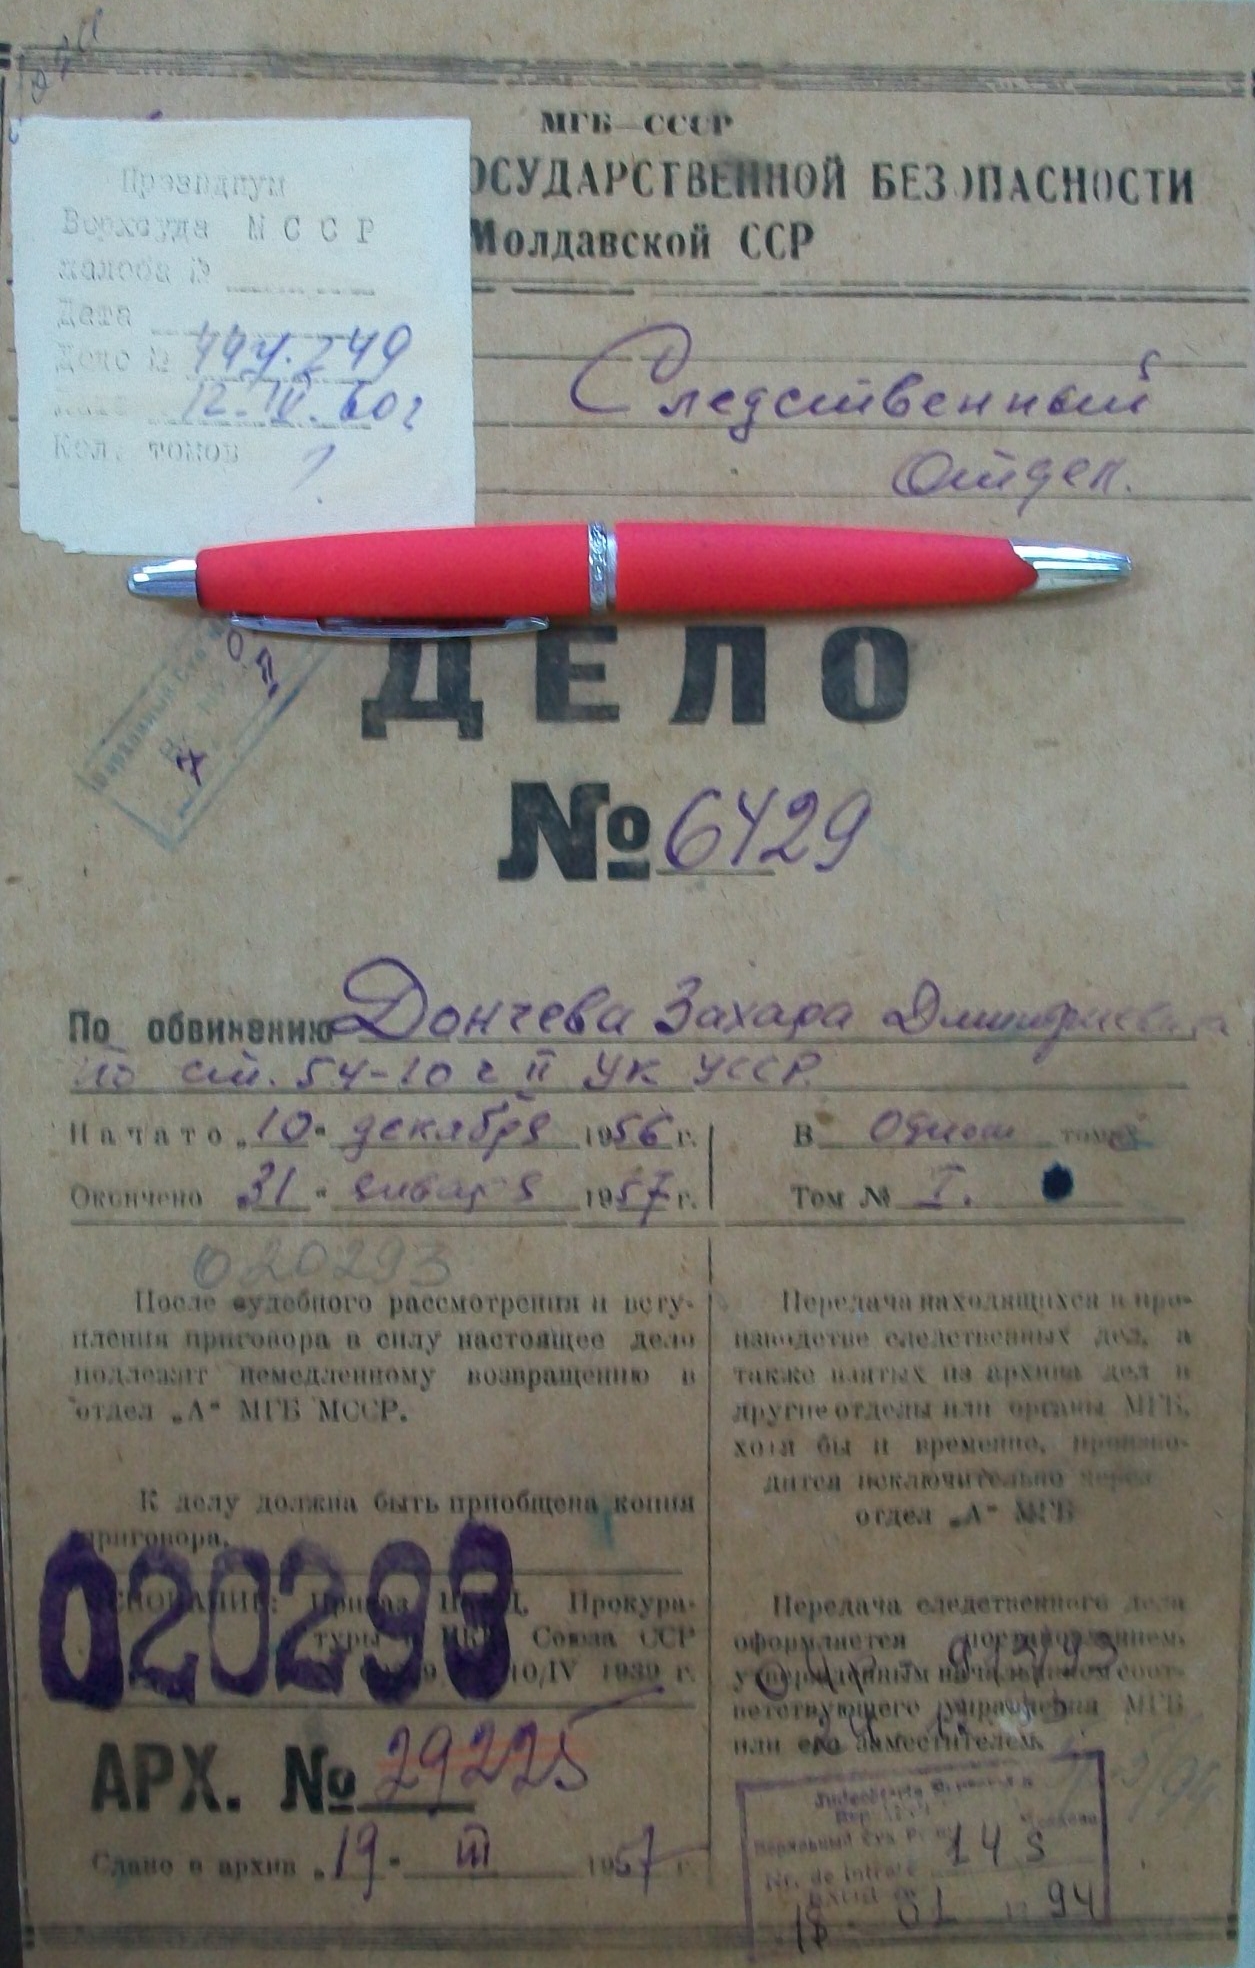 МГБ—СССР
ОСУДАРСТВЕННОЙ БЕЗОПАСНОСТИ
Молдавской ССР
Президиум
Верхсуда МССР
жалоба №
Дата
Дело № 44у-249
12.IV.60г
Кол. томов 1.
Следственный
Отдел.
ДЕЛО
№ 6429
По обвинению Дончева Захара Дмитриевича
по ст. 54-10 ч II УК УССР.
Начато „10“ декабря 1956 г.
Окончено 31 “ января 1957 г.
В одном томе
Том № I.
020293
После судебного рассмотрения и всту-
пления приговора в силу настоящее дело
подлежит немедленному возвращению в
отдел „А“ МГБ МССР.
К делу должна быть приобщена копия
приговора.
020293
ОСНОВАНИЕ: Приказ Прокура-
туры Союза ССР
10/IV 1939 г.
АРХ. № 29225
Сдано в архив „19“ III 1957 г.
Передача находящихся в про-
изводстве следственных дел, а
также взятых из архива дел в
другие отделы или органы МГБ,
хотя бы и временно, произво-
дится исключительно через
отдел „А“ МГБ
Передача следственного дела
оформляется постановлением,
утвержденным начальником соот-
ветствующего управления МГБ
или его заместителем.
Молдова
Nr. de intrare 145
18 01 94